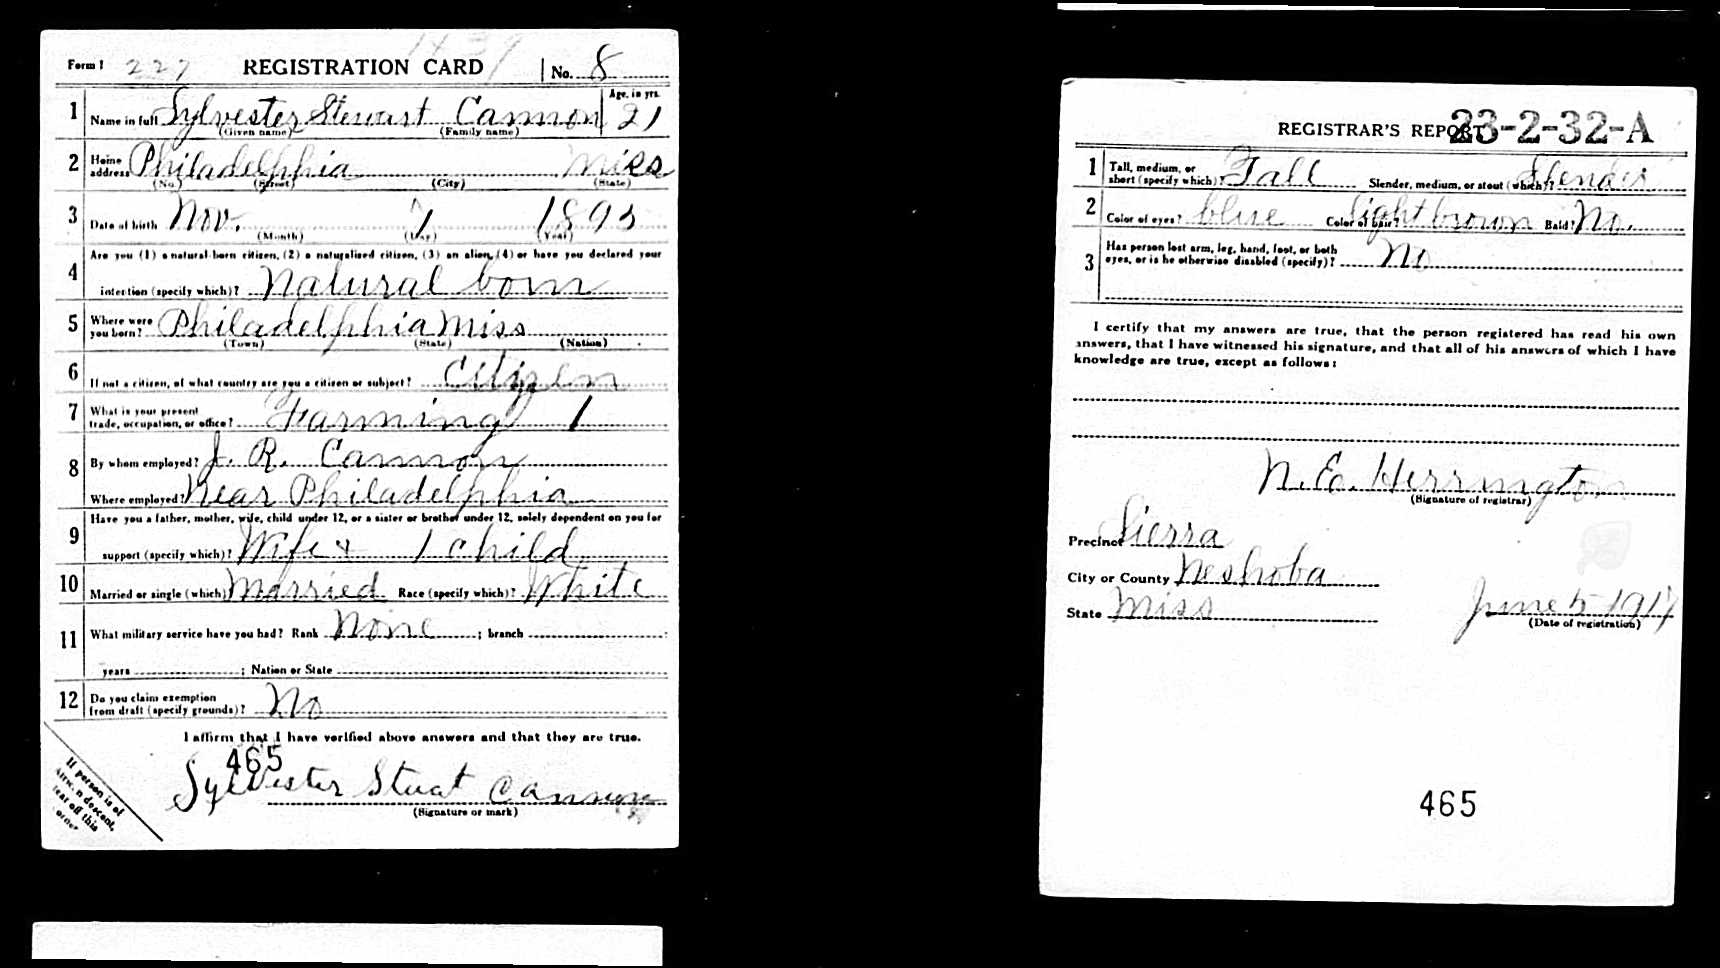 Form 1 227 REGISTRATION CARD No. 8
1 Name in full Sylvester Stewart Cannon Age, in yrs. 21
(Given name) (Family name)
2 Home address Philadelphia Miss
(No.) (Street) (City) (State)
3 Date of birth Nov. 1 1895
(Month) (Day) (Year)
Are you (1) a natural-born citizen, (2) a naturalized citizen, (3) an alien, (4) or have you declared your
4 intention (specify which)? Natural born
5 Where were you born? Philadelphia Miss
(Town) (State) (Nation)
6 If not a citizen, of what country are you a citizen or subject? Citizen
7 What is your present trade, occupation, or office? Farming 1
8 By whom employed? J. R. Cannon
Where employed? Near Philadelphia
Have you a father, mother, wife, child under 12, or a sister or brother under 12, solely dependent on you for
9 support (specify which)? Wife & 1 child
10 Married or single (which) Married Race (specify which)? White
11 What military service have you had? Rank None ; branch
years ; Nation or State
12 Do you claim exemption from draft (specify grounds)? No
I affirm that I have verified above answers and that they are true.
465
Sylvester Stuat Cannon
(Signature or mark)
If person is of
descent,
tear off this
corner
REGISTRAR'S REPORT 23-2-32-A
1 Tall, medium, or short (specify which)? Tall Slender, medium, or stout (which)? Slender
2 Color of eyes? blue Color of hair? light brown Bald? No.
3 Has person lost arm, leg, hand, foot, or both eyes, or is he otherwise disabled (specify)? No
I certify that my answers are true, that the person registered has read his own
answers, that I have witnessed his signature, and that all of his answers of which I have
knowledge are true, except as follows:
N. E. Herrington
(Signature of registrar)
Precinct Sierra
City or County Neshoba
State Miss June 5 1917
(Date of registration)
465